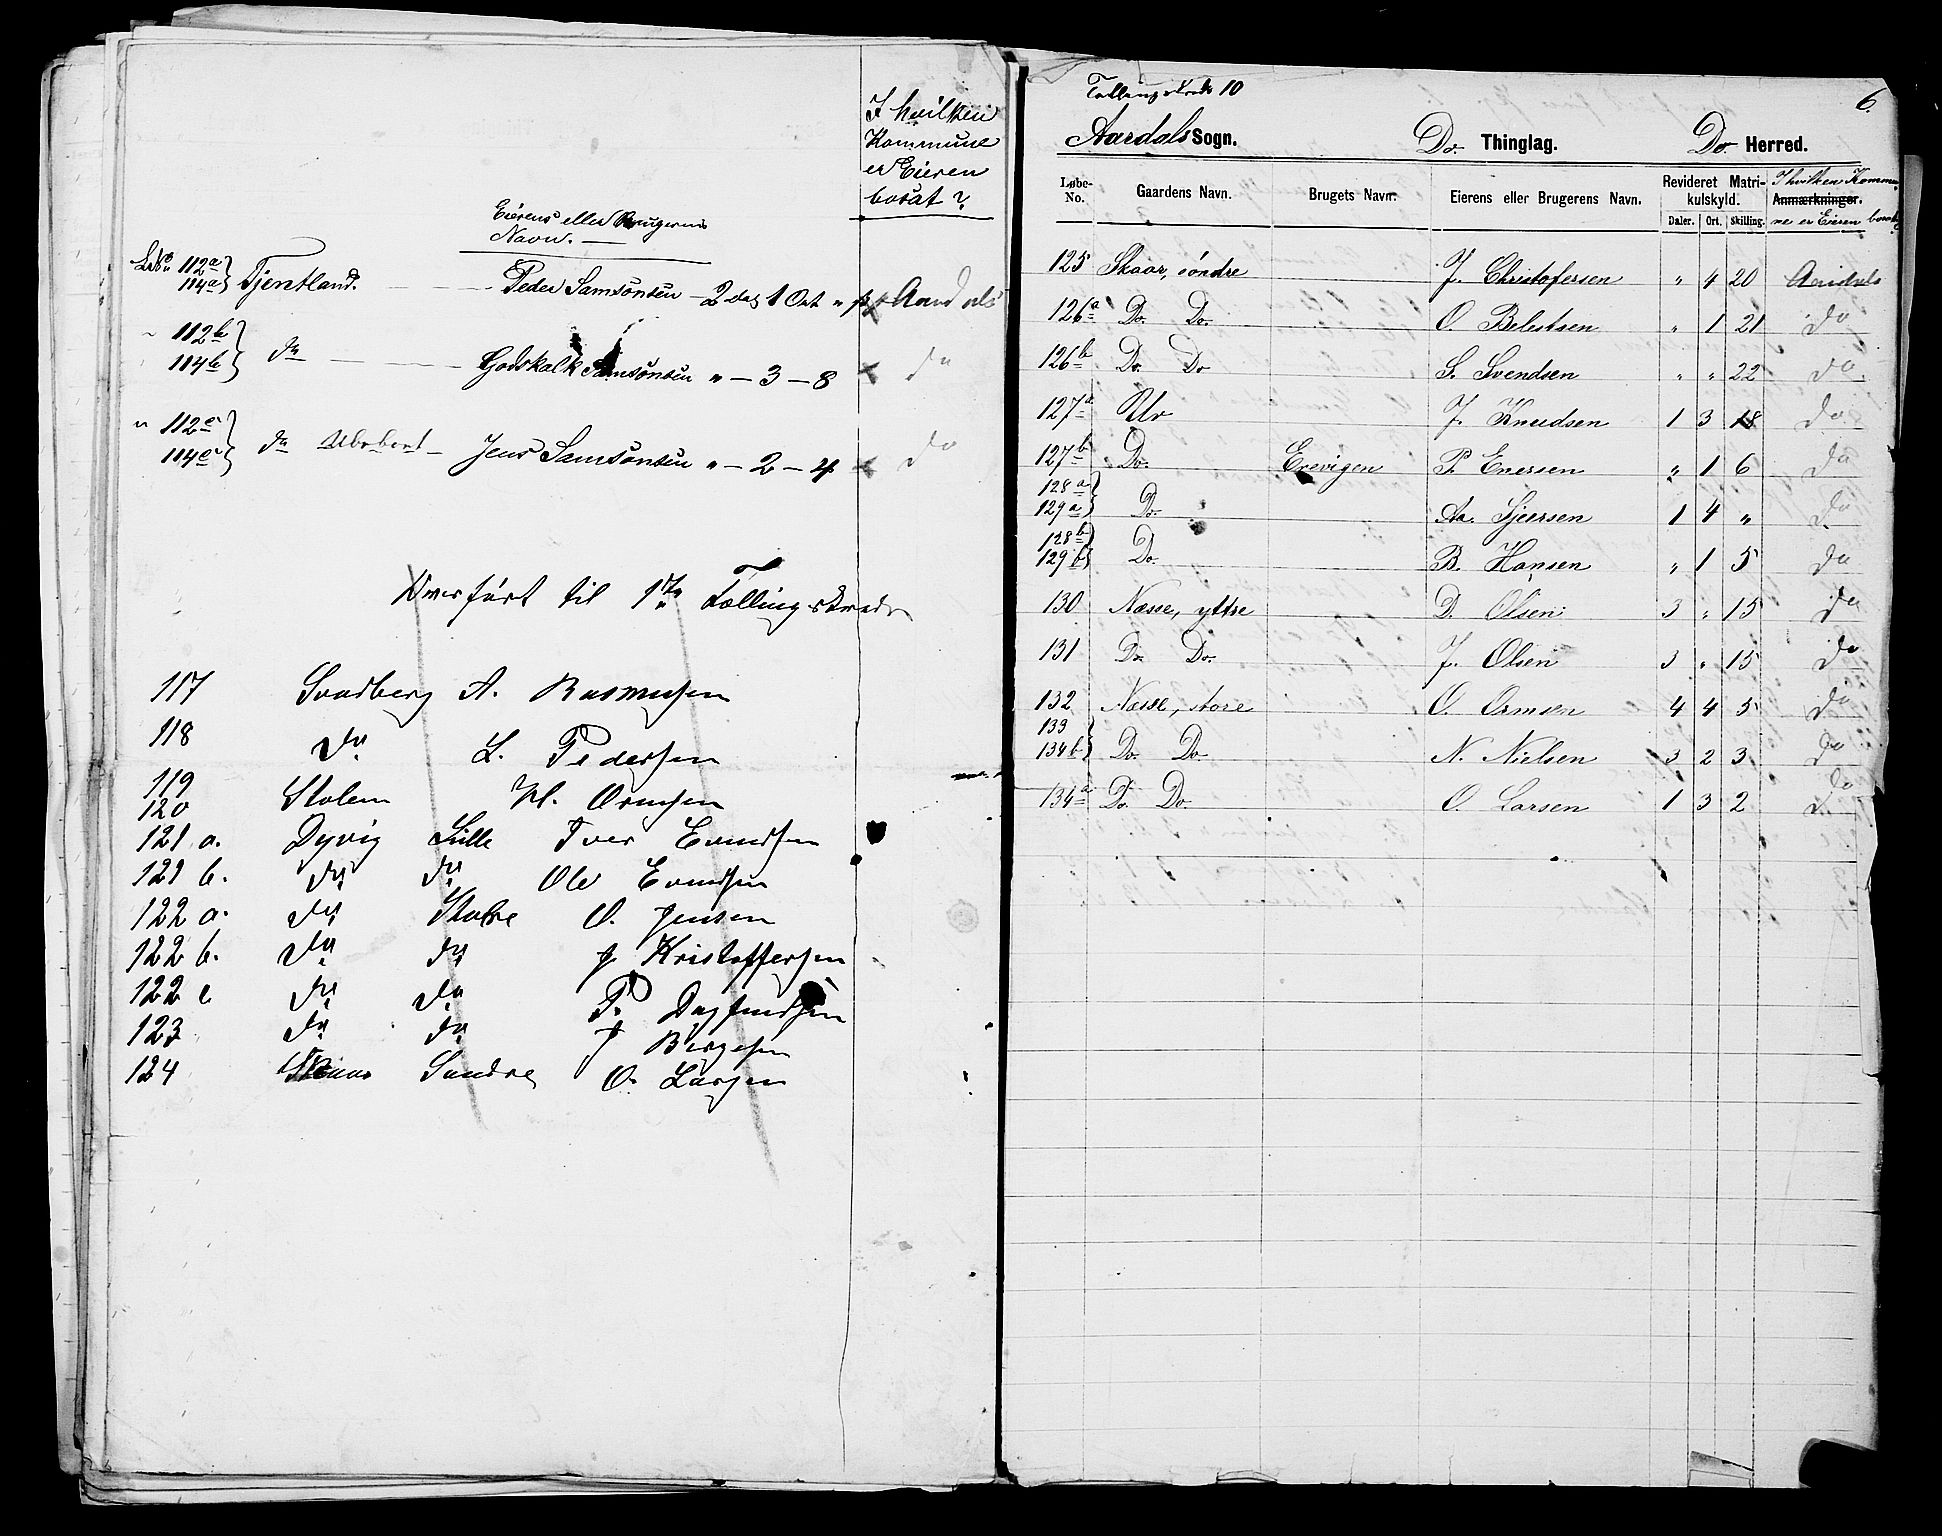 I hvilken
Kommune
er Eieren
bosat?
Eierens eller Brugerens
Navn.
LNo 112a 114a } Tjentland. Peder Samsonsen 2 dal 1 Ort " Aardals
" 112b 114b } do Godskalk Samsonsen " – 3 – 8 do
" 112c 114c } do Jens Samsonsen " – 2 – 4 do
Overført til 1te Tællingskreds
117 Svadberg A. Rasmusen
118 do L. Pedersen
119
120 Stolen Ormsen
121 a. Dyvig Lille Iver Evendsen
121 b. do do Ole Evendsen
122 a. do Store O. Jensen
122 b. do do J Kristoffersen
122 c do do P. Dagfindsen
123 do do J Børgesen
124 Skaar Søndre O. Larsen
Tællingskreds 10
6.
Aardals Sogn. Do. Thinglag. Do. Herred.
Løbe-No. Gaardens Navn. Brugets Navn. Eierens eller Brugerens Navn. Revideret Matrikulskyld. Anmærkninger. I hvilken Kommune er Eieren bosat
Daler. Ort. Skilling.
125 Skaar, söndre J. Christofersen " 4 20 Aardals
126a Do. Do. O. Belestsen " 1 21 do
126b Do. Do S. Svendsen " " 22 do
127a Ur J. Knudsen 1 3 18 do
127b Do. Erevigen P. Enersen " 1 6 do
128a 129a } Do. Aa. Sjursen 1 4 " do
128b 129b } Do. B. Hansen " 1 5 do
130 Næsse, yttre D. Olsen 3 " 15 do
131 Do. Do. J. Olsen 3 " 15 do
132 Næsse, store O. Ormsen 4 4 5 do
133 134b } Do. Do. N. Nielsen 3 2 3 do
134a Do. Do. O. Larsen 1 3 2 do